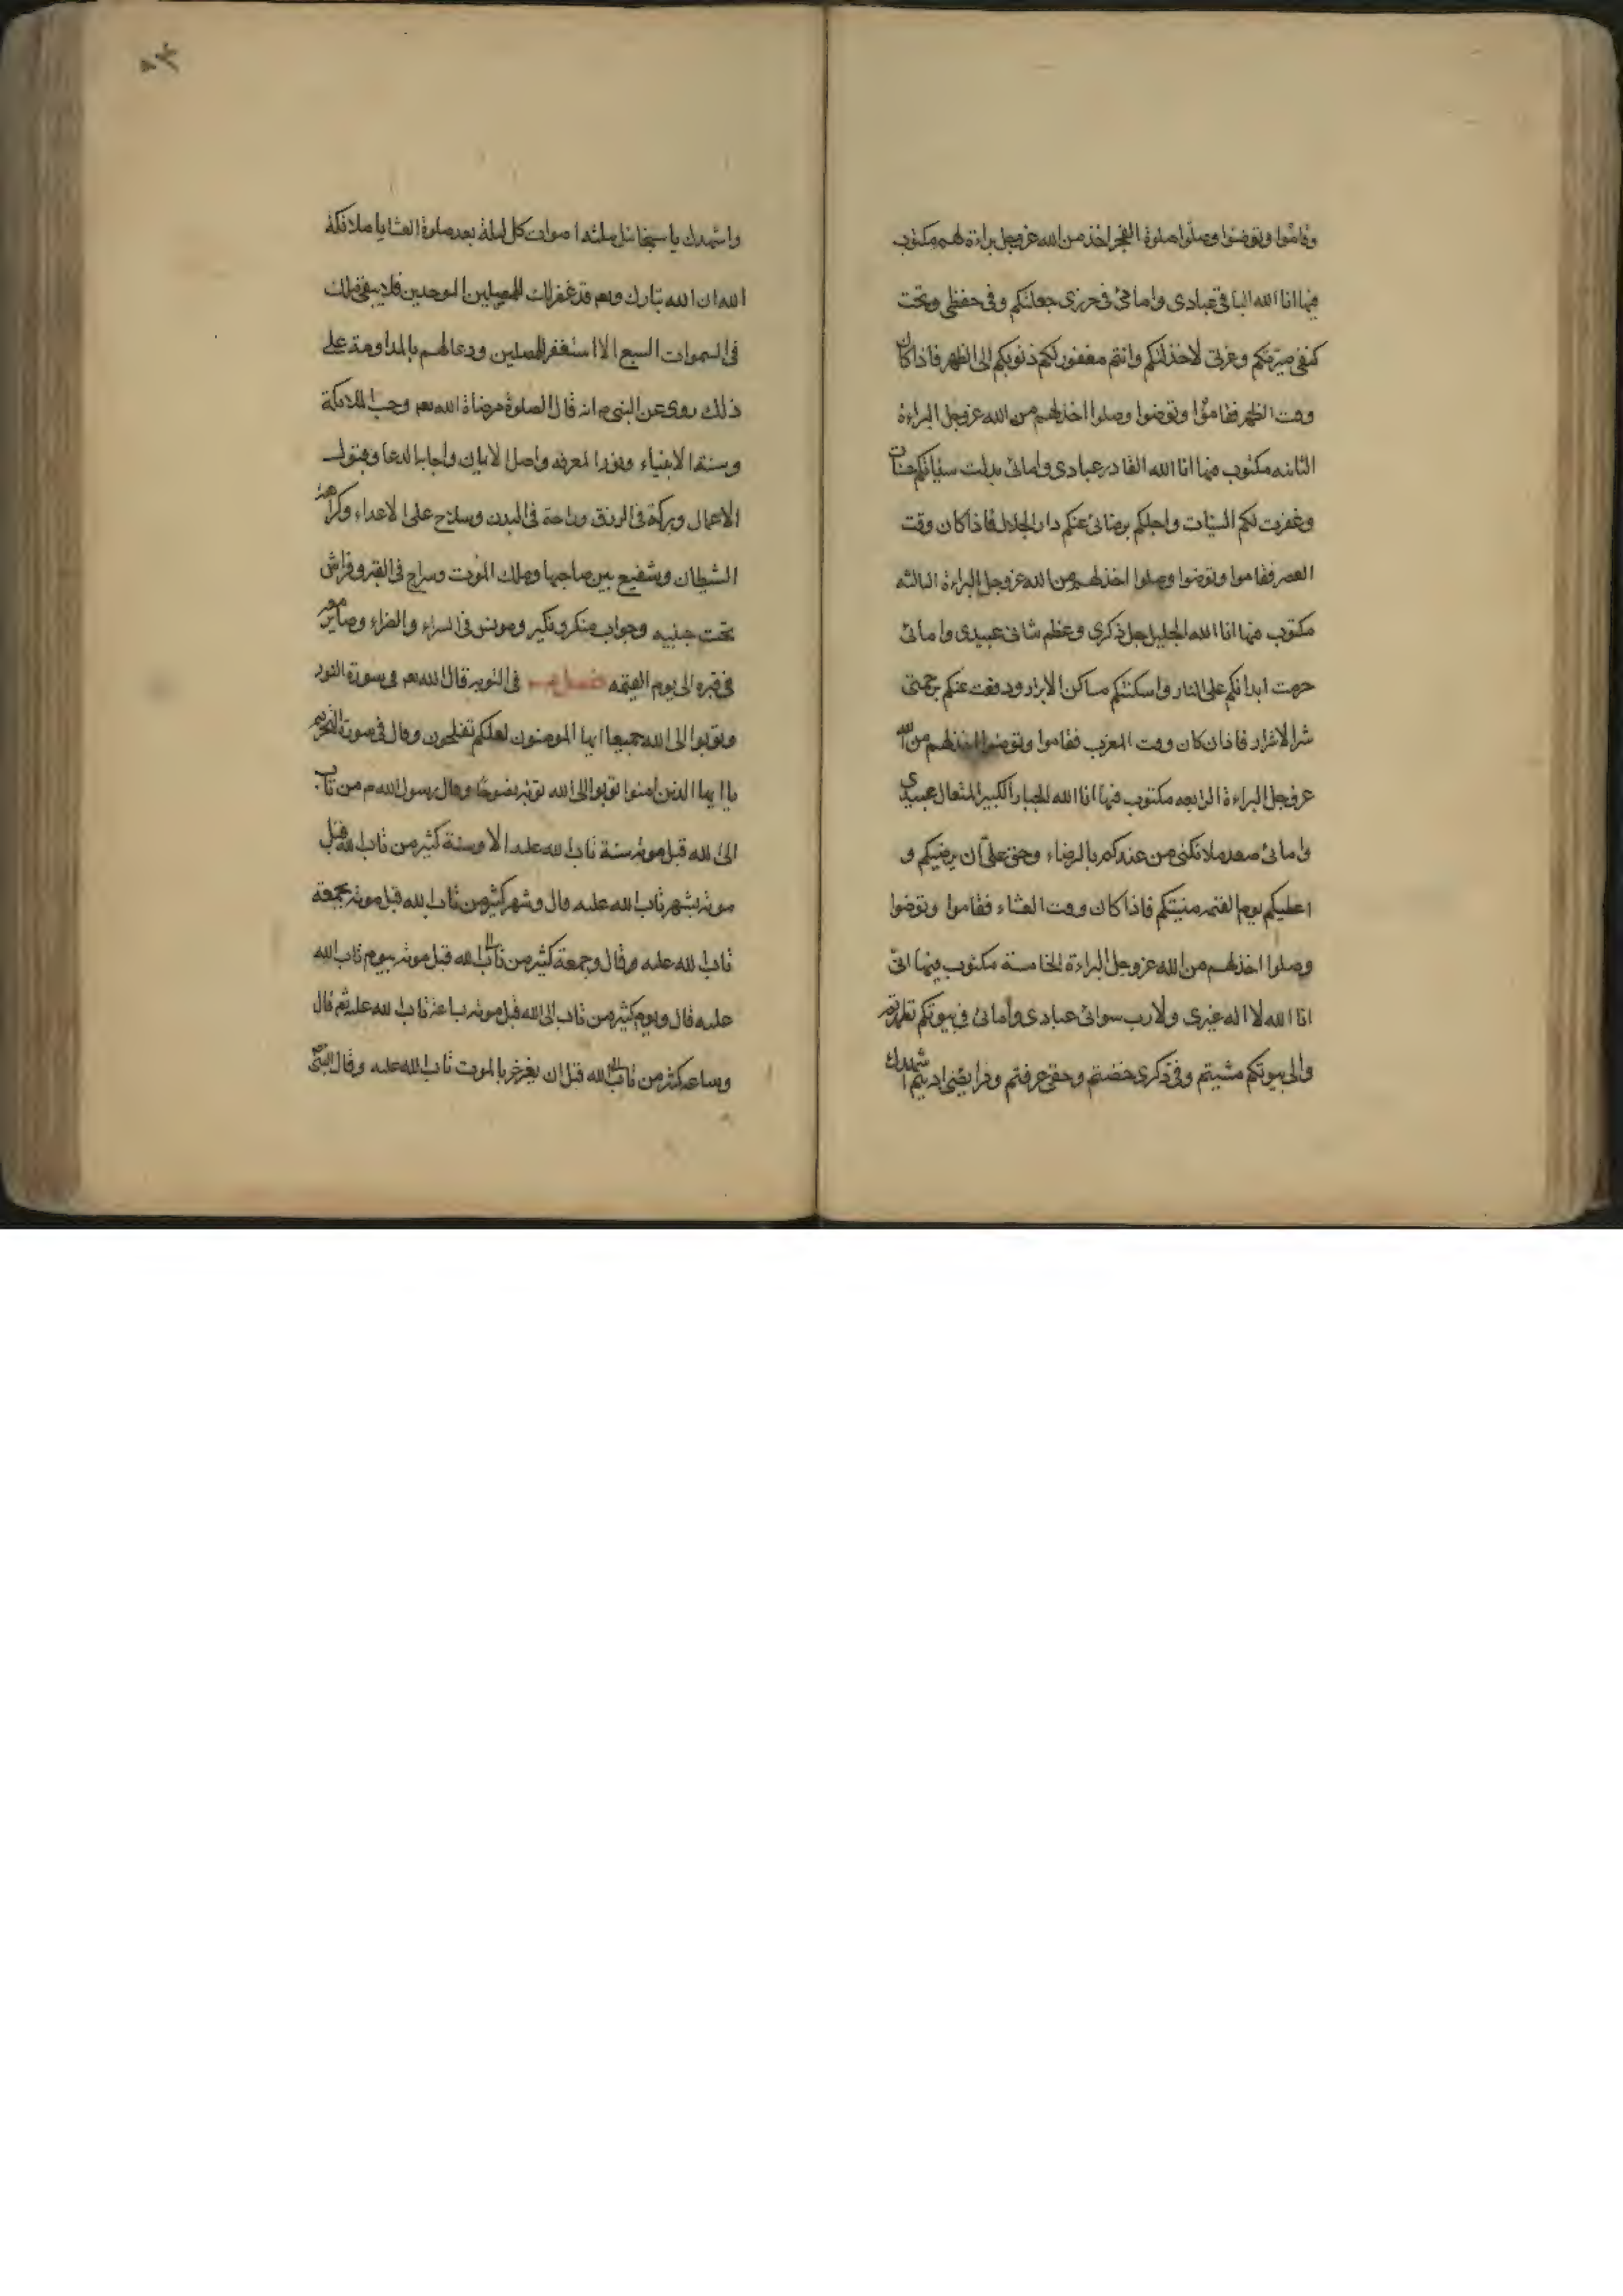 وقاموا وتوضوا وصلوا صلوة الفجر اخذ من الله عز وجل براءة لهم مكتوب
فيها انا الله الباقي عبادى وامائى فى حرزى جعلتكم وفى حفظى وتحت
كنفى صيرتكم وعزتى لاخذلتكم وانتم مغفور لكم ذنوبكم الى الظهر فاذا كان
وقت الظهر فقاموا وتوضوا وصلوا اخذ لهم من الله عز وجل البراءة
الثانيه مكتوب فيها انا الله القادر عبادى وامائى بدلت سيأتكم حسنات
وغفرت لكم السيئات واحلكم برضائى عنكم دار الجلال فاذا كان وقت
العصر فقاموا وتوضوا وصلوا اخذ لهم من الله عز وجل البراءة الثالثه
مكتوب فيها انا الله الجليل جل ذكرى وعظم شانى عبيدى وامائى
حرمت ابدانكم على النار واسكنتكم مساكن الابرار ودفعت عنكم برحمتى
شر الاشرار فاذا كان وقت المغرب فقاموا وتوضوا اخذ لهم من الله
عز وجل البراءة الرابعه مكتوب فيها انا الله الجبار الكبير المتعال عبيدى
وامائى صعد ملائكتى من عندكم بالرضاء وحق على ان يرضيكم و
اعطيكم يوم القيمه منيتكم فاذا كان وقت العشاء فقاموا وتوضوا
وصلوا اخذ لهم من الله عز وجل البراءة الخامسة مكتوب فيها انى
انا الله لا اله غيرى ولا رب سوائى عبادى وامائى فى بيوتكم تطهرتم
والى بيوتكم مشيتم وفى ذكرى خضتم وحقى عرفتم وفرايضى اديتم اشهدك
واشهدك يا سخائيل ثلثه اصوات كل ليلة بعد صلوة العشا يا ملائكة
الله ان الله تبارك وتعم قد غفر لك للمصلين الموحدين فلا يبقى ملك
فى السموات السبع الا استغفر للمصلين ودعا لهم بالمداومة على
ذلك روى عن النبى م انه قال الصلوة مرضاة الله تعم وحب الملائكة
وسنة الانبياء ونور المعرفه واصل الايمان واجابه الدعا وقبول
الاعمال وبركة فى الرزق وراحة فى البدن وسلاح على الاعداء وكراهة
الشيطان وشفيع بين صاحبها وملك الموت وسراج فى القبر وفراش
تحت جنبيه وجواب منكر ونكير ومونس فى السراء والضراء وصاير معه
فى قبره الى يوم القيمه فصل فى التوبه قال الله تعم فى سورة النور
وتوبوا الى الله جميعا ايها المومنون لعلكم تفلحون وقال فى سورة التحريم
يا ايها الذين امنوا توبوا الى الله توبة نصوحا وقال رسول الله م من تاب
الى الله قبل موته بسنة تاب الله عليه الا وسنة كثير من تاب لله قبل
موته بشهر تاب الله عليه قال وشهر كثير من تاب لله قبل موته بجمعة
تاب الله عليه وقال وجمعة كثير من تاب الى الله قبل موته بيوم تاب الله
عليه قال ويوم كثير من تاب الى الله قبل موته بساعة تاب الله عليه ثم قال
وساعه كثير من تاب الى الله قبل ان يغرغر بالموت تاب الله عليه وقال النبى